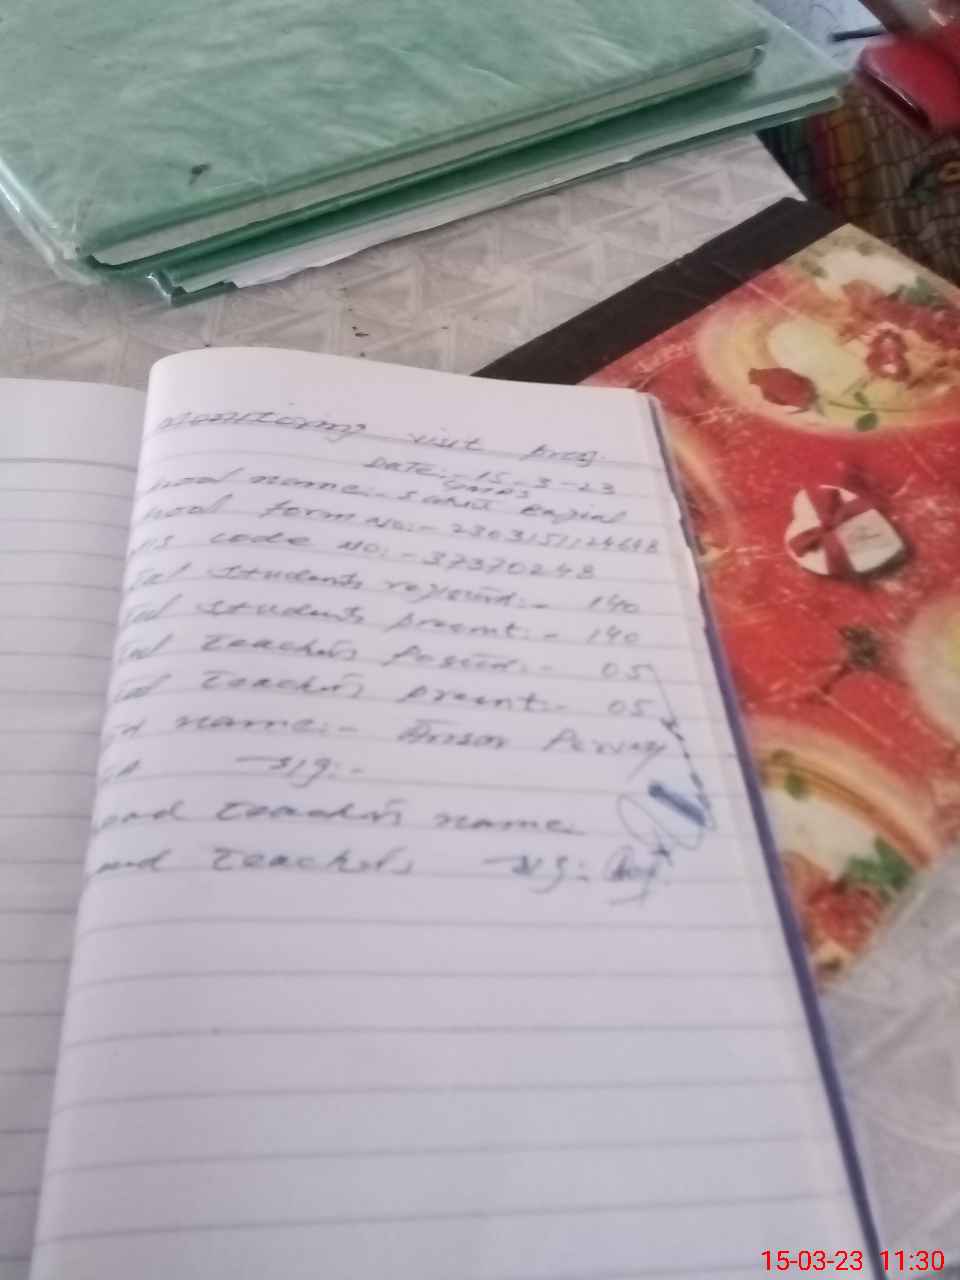 Monitoring visit prog.
Date:- 15-3-23
GMPS
hool name:- sahib
hool form No:- 2303151124648
mis code No:- 37370248
tal students registrd:- 140
tal students present:- 140
tal teachers Postin:- 05
tal teachers present:- 05
name:- Anser Pervez
sig:-
ead teachers name
ead teachers sig:
15-03-23 11:30